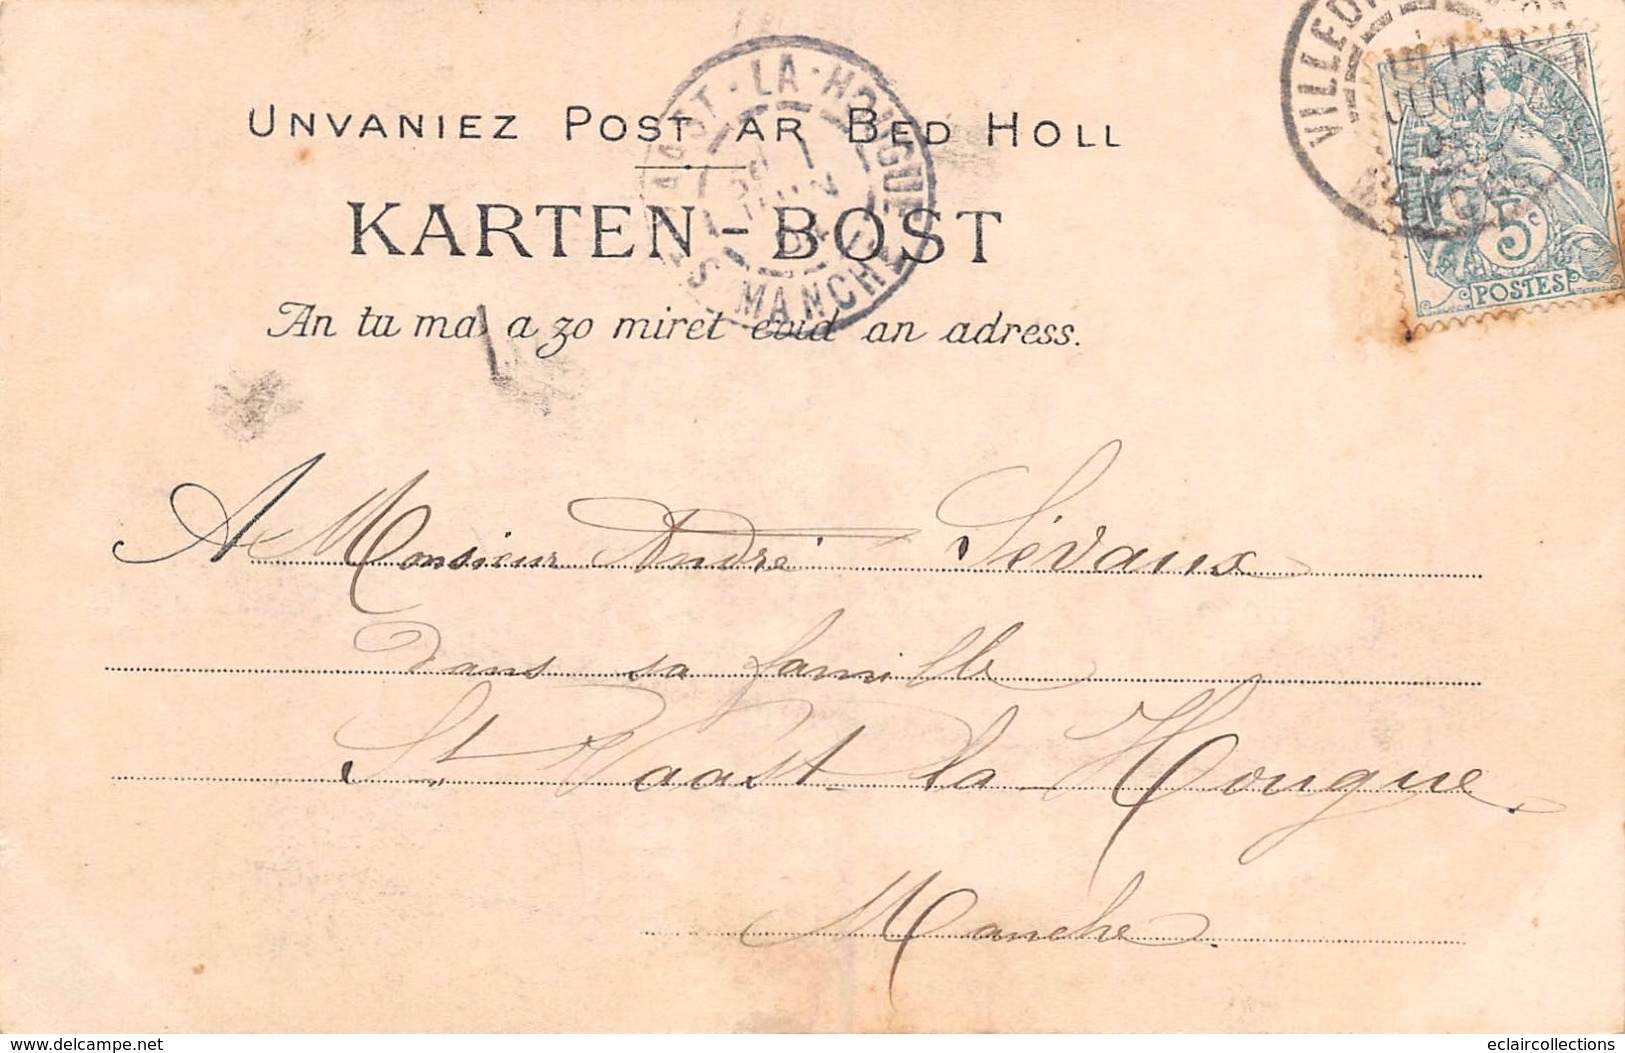 UNVANIEZ POST AR BED HOLL
KARTEN-BOST
An tu ma a zo miret evid an adress.
VAAST-LA-HOUGUE
JUIN
MANCHE
VILLEDI
JUIN
5c
POSTES
A Monsieur André Sévaux
dans sa famille
St Vaast-la-Hougue.
Manche.
www.delcampe.net
eclaircollections